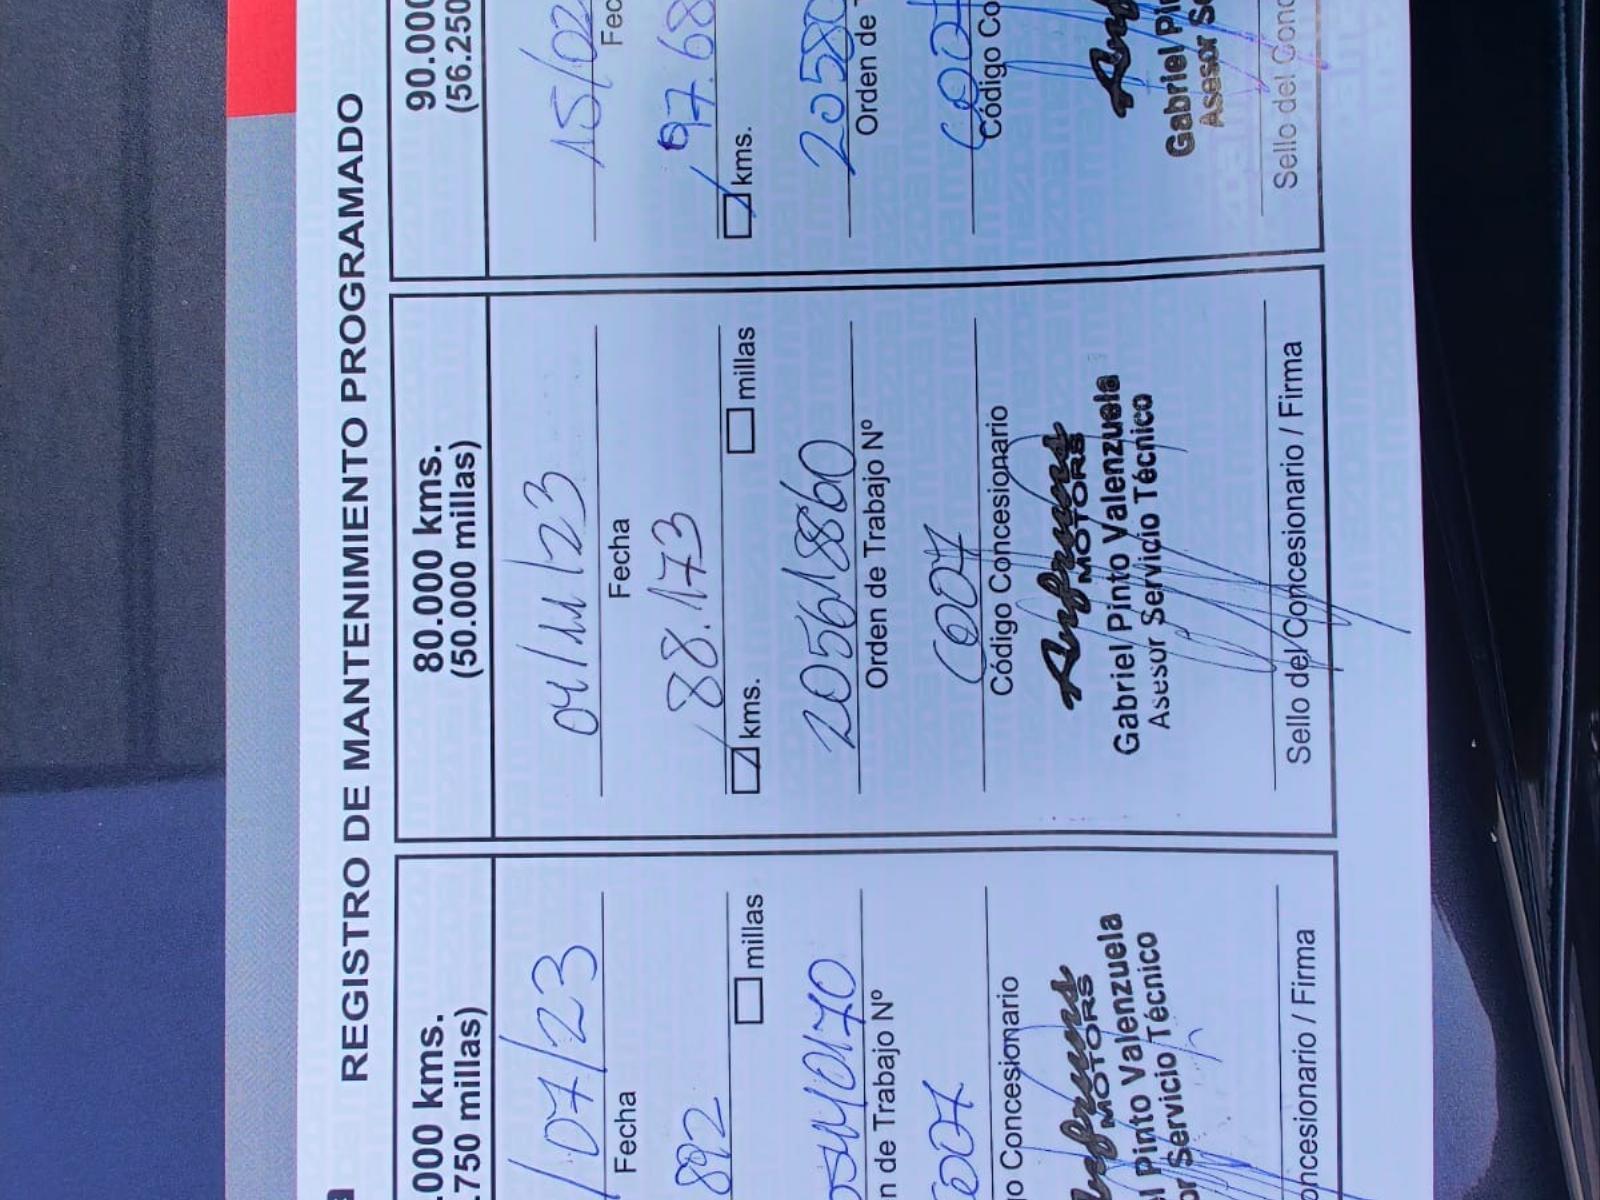 REGISTRO DE MANTENIMIENTO PROGRAMADO
.000 kms.
.750 millas)
/07/23
Fecha
892
millas
0170
n de Trabajo Nº
C007
go Concesionario
Anfruns
MOTORS
el Pinto Valenzuela
or Servicio Técnico
oncesionario / Firma
80.000 kms.
(50.000 millas)
04/11/23
Fecha
88.173
kms.
millas
205618860
Orden de Trabajo Nº
C007
Código Concesionario
Anfruns
MOTORS
Gabriel Pinto Valenzuela
Asesor Servicio Técnico
Sello del Concesionario / Firma
90.000
(56.250
15/02
Fec
97.68
kms.
20580
Orden de T
C007
Código Co
Anf
Gabriel Pi
Asesor Se
Sello del Conc